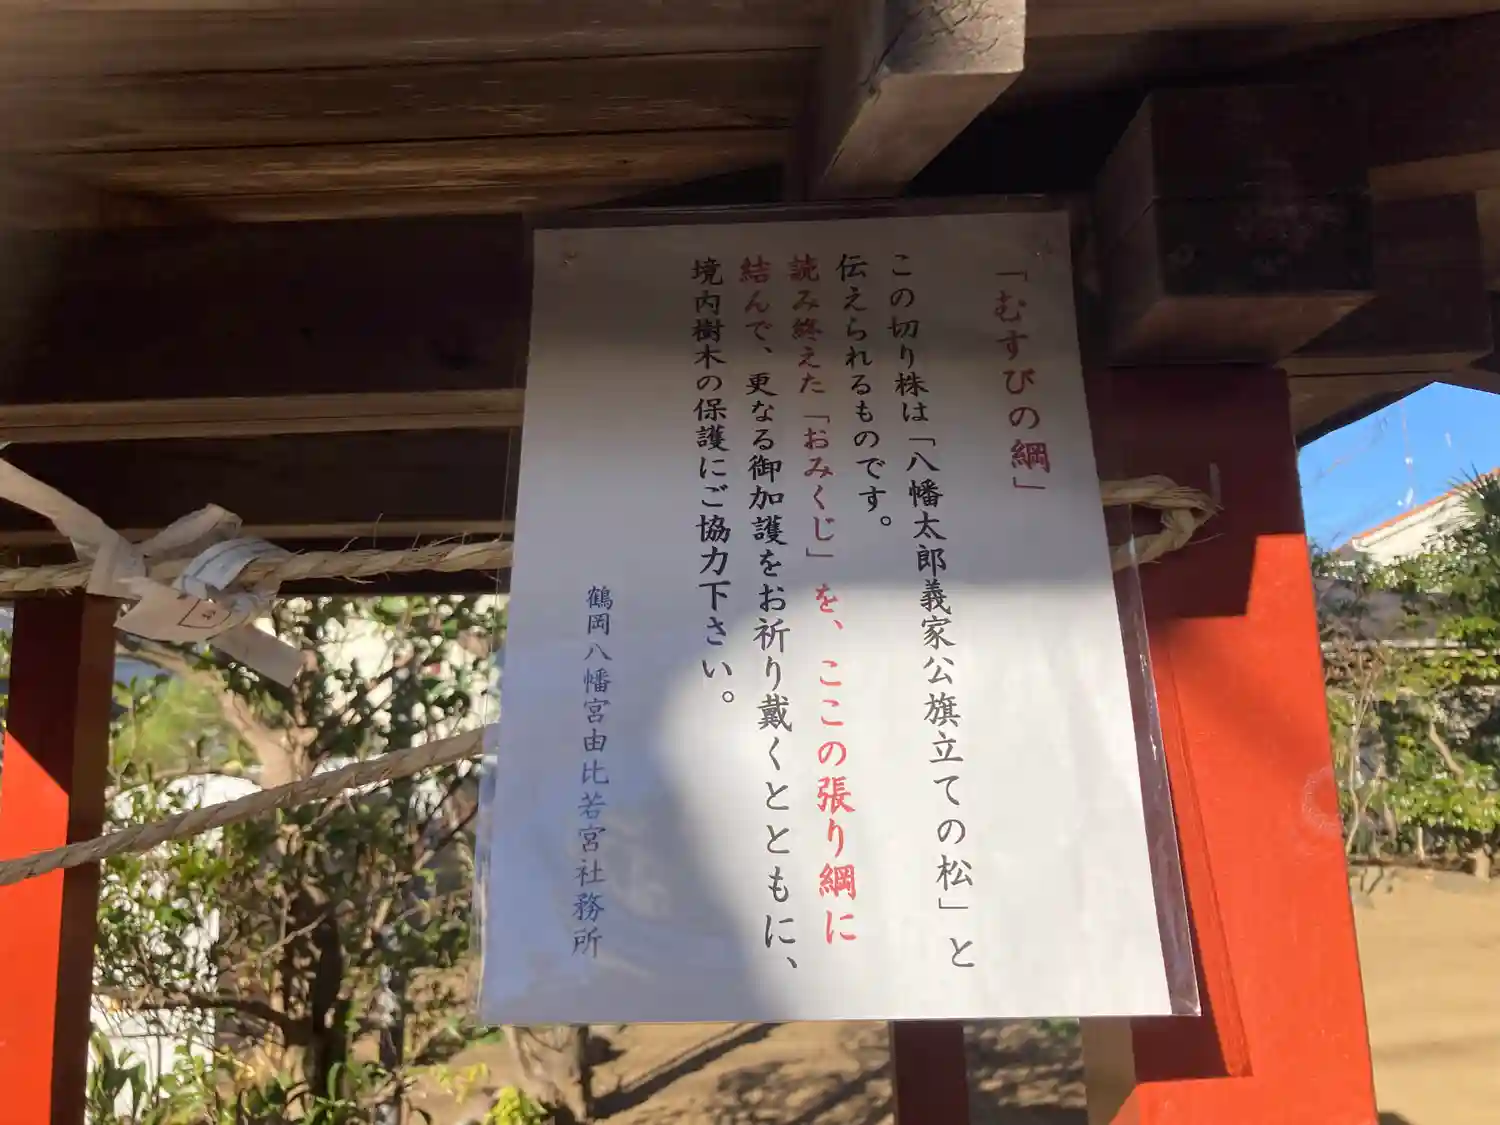 「むすびの綱」
この切り株は「八幡太郎義家公旗立ての松」と
伝えられるものです。
読み終えた「おみくじ」を、ここの張り綱に
結んで、更なる御加護をお祈り戴くとともに、
境内樹木の保護にご協力下さい。
鶴岡八幡宮由比若宮社務所